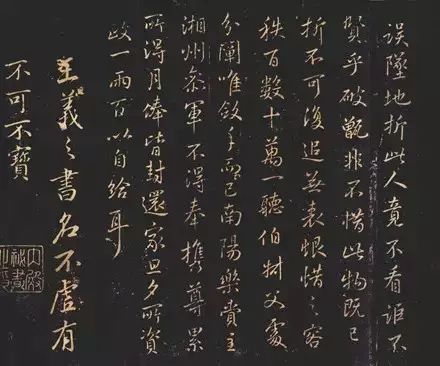 誤墜地折此人竟不看詎不
賢乎破甑非不惜此物既已
折不可復追無表恨惜之容
秩百數十萬一聽伯樹父處
分闡唯斂手而已南陽樂賁主
湘州參軍不得奉携尊累
所得月俸皆封還家旦夕所資
政一兩百以自給耳
王羲之書名不虛有
不可不寶
內殿秘書之印